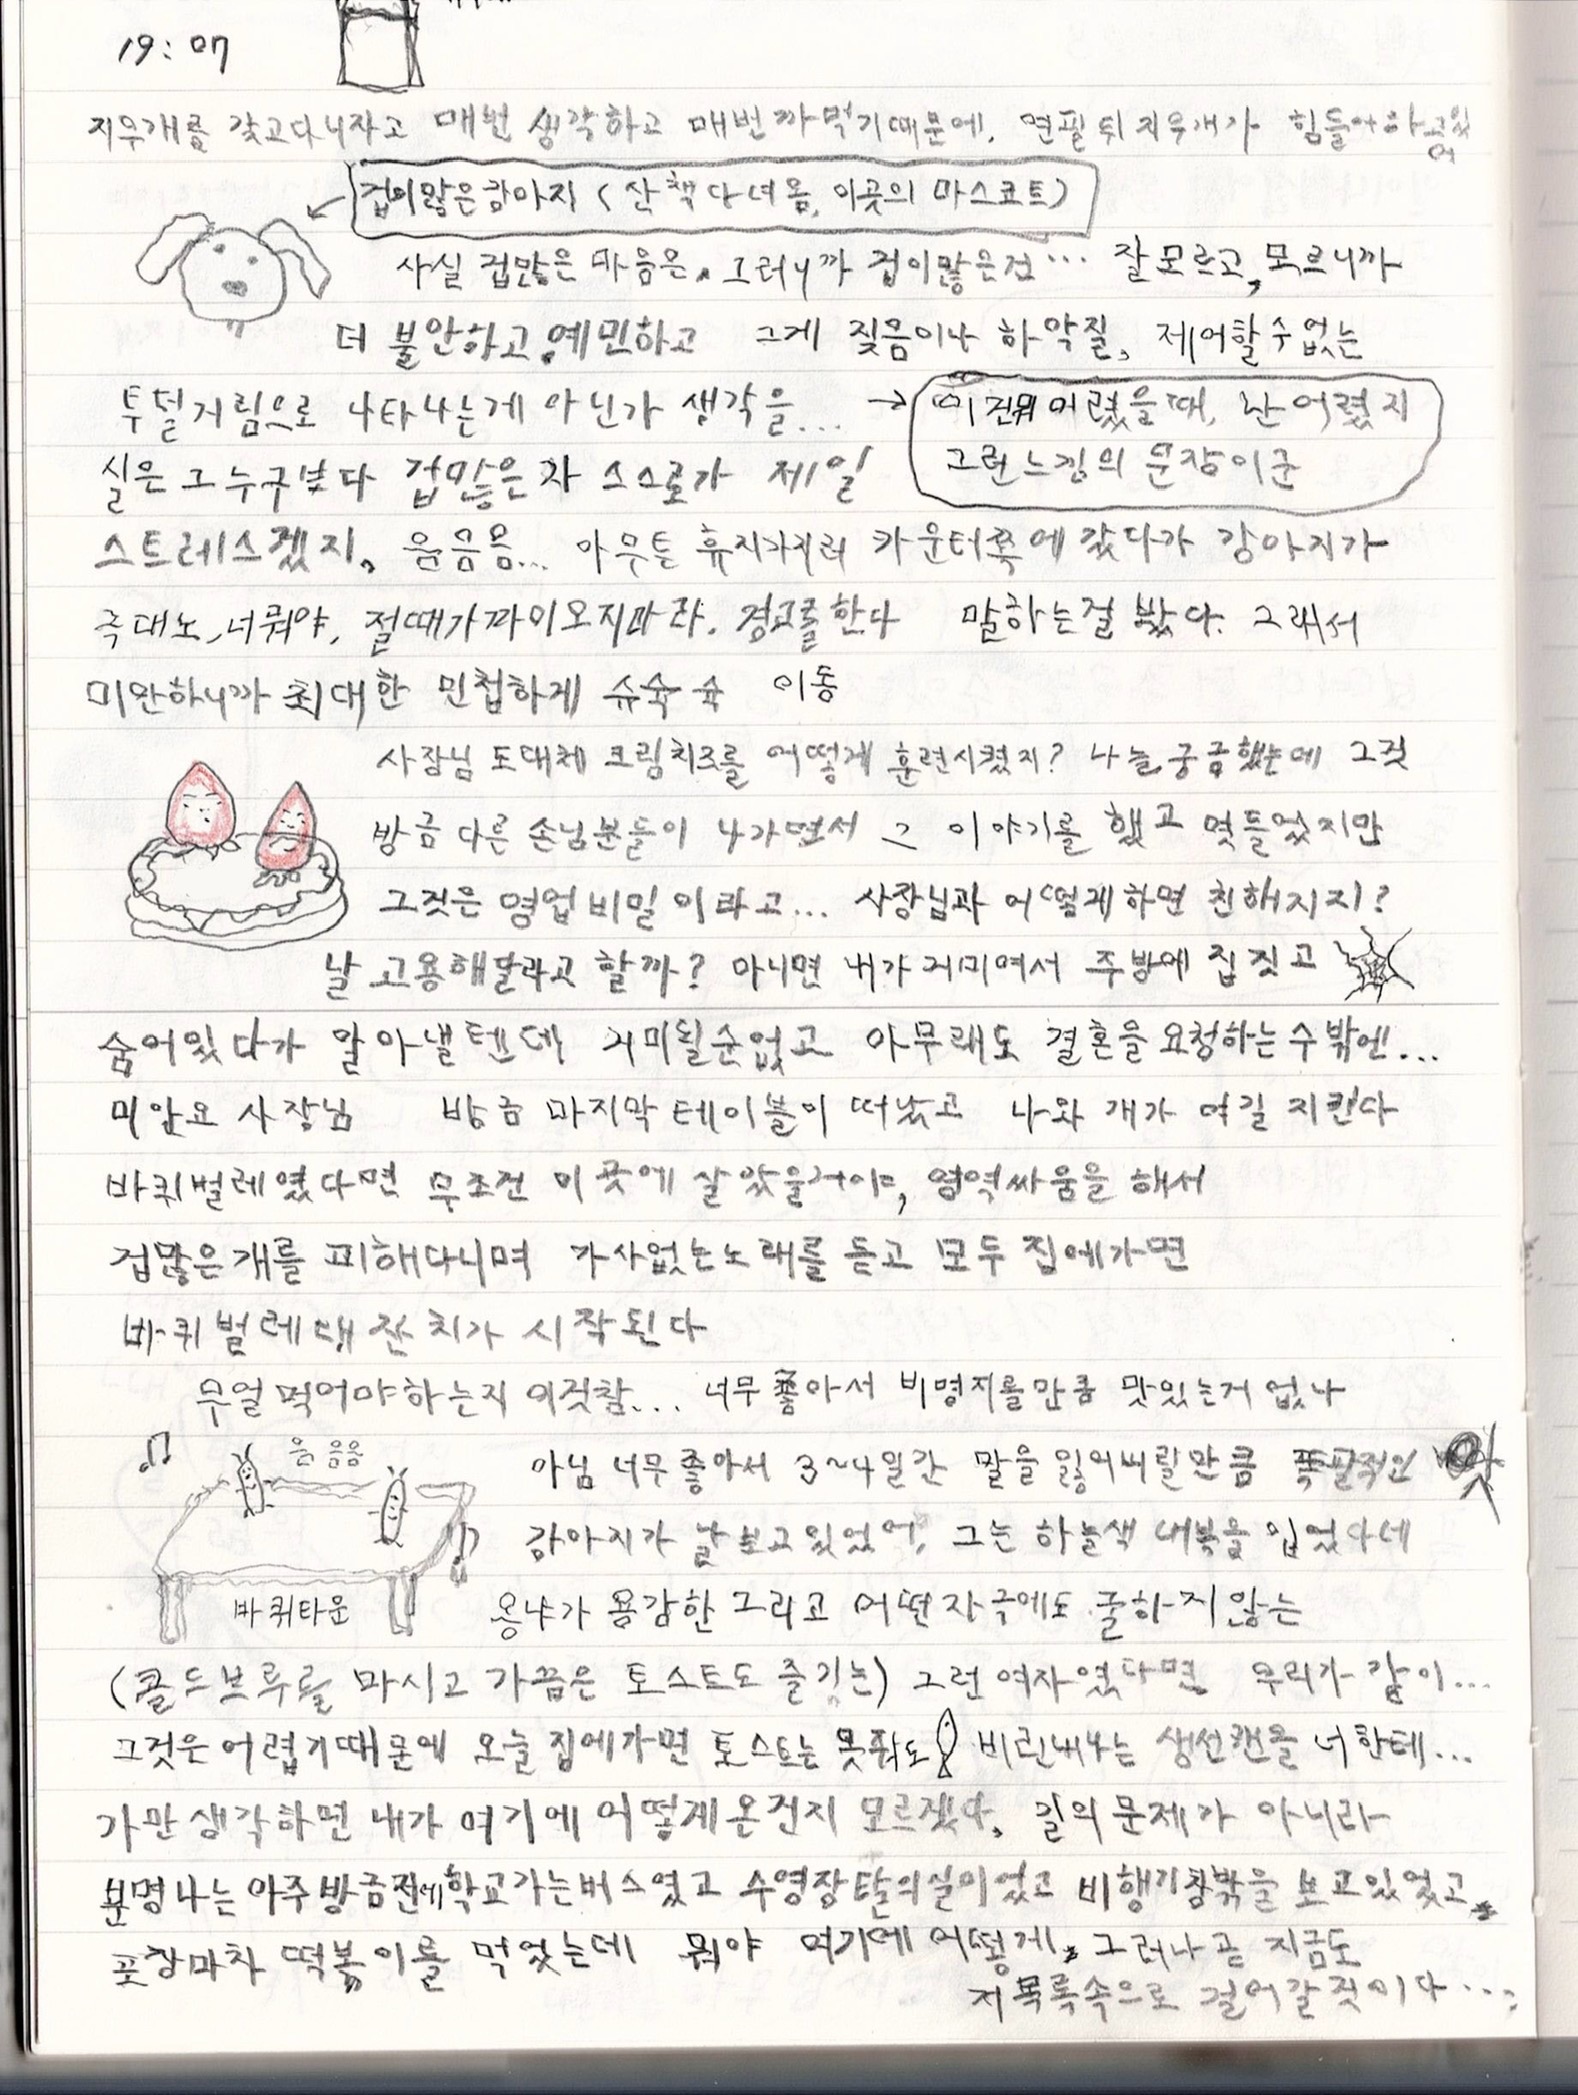 19:07
지우개를 갖고다니자고 매번 생각하고 매번까먹기때문에, 연필뒤지우개가 힘들어하고있어
겁이많은강아지 (산책다녀옴, 이곳의 마스코트)
사실 겁많은 마음은, 그러니까 겁이많은건... 잘모르고, 모르니까
더 불안하고, 예민하고 그게 짖음이나 하악질, 제어할수없는
투덜거림으로 나타나는게 아닌가 생각을...
어렸을때, 난 어렸지
그런느낌의 문장이군
실은 그누구보다 겁많은자 스스로가 제일
스트레스겠지, 음음음... 아무튼 휴지가지러 카운터쪽에갔다가 강아지가
극대노, 너뭐야, 절때가까이오지마라, 경고를한다 말하는걸 봤다. 그래서
미안하니까 최대한 민첩하게 슈슉슉 이동
사장님 도대체 크림치즈를 어떻게 훈련시켰지? 나늘궁금했는데 그것
방금 다른 손님분들이 나가면서 그 이야기를 했고 엿들었지만
그것은 영업비밀이라고... 사장님과 어떻게하면 친해지지?
날 고용해달라고 할까? 아니면 내가거미여서 주방에 집짓고
숨어있다가 알아낼텐데 거미될순없고 아무래도 결혼을요청하는수밖엔...
미안요 사장님 방금 마지막테이블이 떠났고 나와 개가 여길 지킨다
바퀴벌레였다면 무조건 이곳에 살았을거야, 영역싸움을 해서
겁많은개를 피해다니며 가사없는노래를 듣고 모두집에가면
바퀴벌레대잔치가 시작된다
무얼먹어야하는지 이것참... 너무좋아서 비명지를만큼 맛있는거없나
음 음음
아님 너무좋아서 3~4일간 말을잃어버릴만큼 폭발적인 맛
강아지가 날보고있었어, 그는 하늘색 내복을 입었다네
바퀴타운
용냐가 용감한 그리고 어떤자극에도 굴하지않는
(콜드브루를 마시고 가끔은 토스트도 즐기는) 그런여자였다면 우리가 같이...
그것은어렵기때문에 오늘집에가면 토스트는 못줘도 비린내나는 생선캔을 너한테...
가만생각하면 내가 여기에 어떻게온건지 모르겠다, 길의문제가 아니라
분명나는 아주방금전에학교가는버스였고 수영장탈의실이었고 비행기창밖을 보고있었고,
포장마차 떡볶이를 먹었는데 뭐야 여기에어떻게, 그러나곧 지금도
저목록속으로 걸어갈것이다...